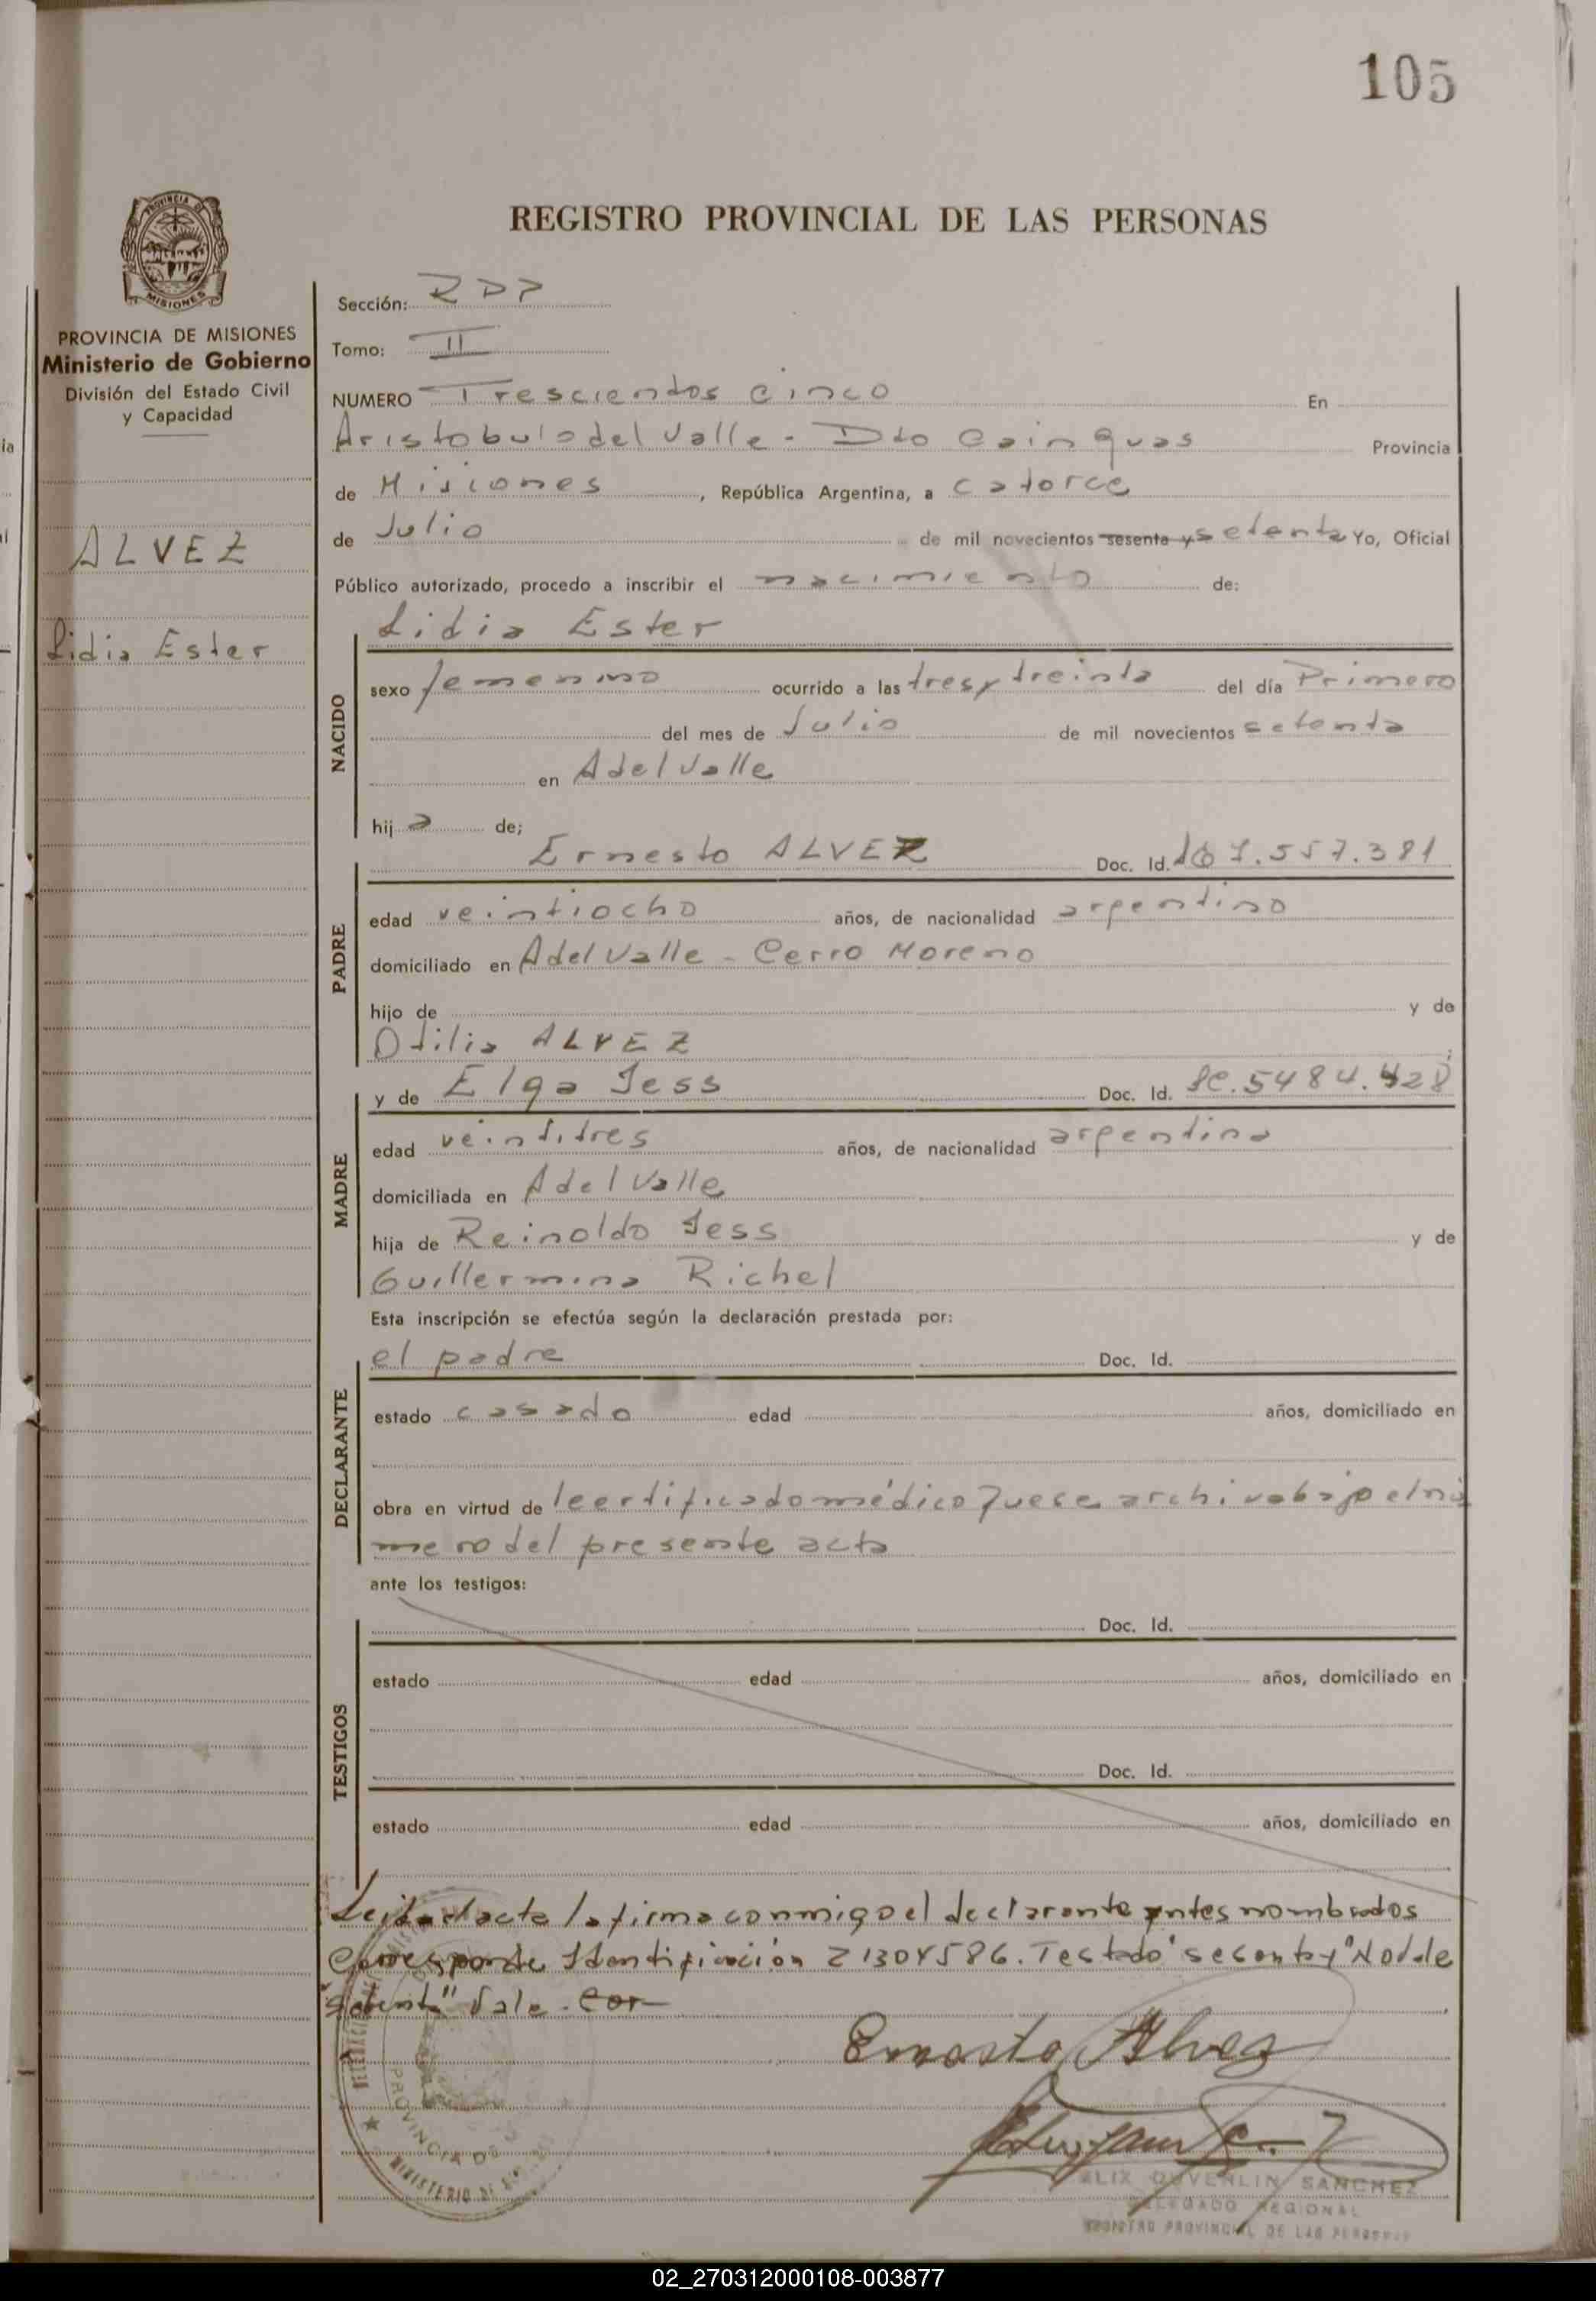 105
PROVINCIA DE MISIONES
REGISTRO PROVINCIAL DE LAS PERSONAS
PROVINCIA DE MISIONES
Ministerio de Gobierno
División del Estado Civil
y Capacidad
ALVEZ
Lidia Ester
Sección: RDP
Tomo: II
NUMERO Trescientos cinco En
Aristobulo del Valle - Dto Cainguas Provincia
de Misiones, República Argentina, a catorce
de Julio de mil novecientos sesenta y setenta Yo, Oficial
Público autorizado, procedo a inscribir el nacimiento de:
NACIDO
Lidia Ester
sexo femenino ocurrido a las tres y treinta del día Primero
del mes de Julio de mil novecientos setenta
en A del Valle
hij a de;
PADRE
Ernesto ALVEZ Doc. Id. 7.557.381
edad veintiocho años, de nacionalidad argentino
domiciliado en A del Valle - Cerro Moreno
hijo de y de
Otilia ALVEZ
MADRE
y de Elga Jess Doc. Id. 5484.428
edad veintitres años, de nacionalidad argentina
domiciliada en A del Valle
hija de Reinoldo Jess y de
Guillermina Richel
Esta inscripción se efectúa según la declaración prestada por:
DECLARANTE
el padre Doc. Id.
estado casado edad años, domiciliado en
obra en virtud de certificado médico que se archiva bajo el nú
mero del presente acta
ante los testigos:
TESTIGOS
Doc. Id.
estado edad años, domiciliado en
Doc. Id.
estado edad años, domiciliado en
Leida el acta la firma conmigo el declarante antes nombrados
Corresponde Identificación 21304586. Testado "sesenta y" No vale
"setenta" Vale.
Ernesto Alvez
PROVINCIA DE
MINISTERIO DE
FELIX DUVENLIN SANCHEZ
DELEGADO REGIONAL
REGISTRO PROVINCIAL DE LAS PERSONAS
02_270312000108-003877